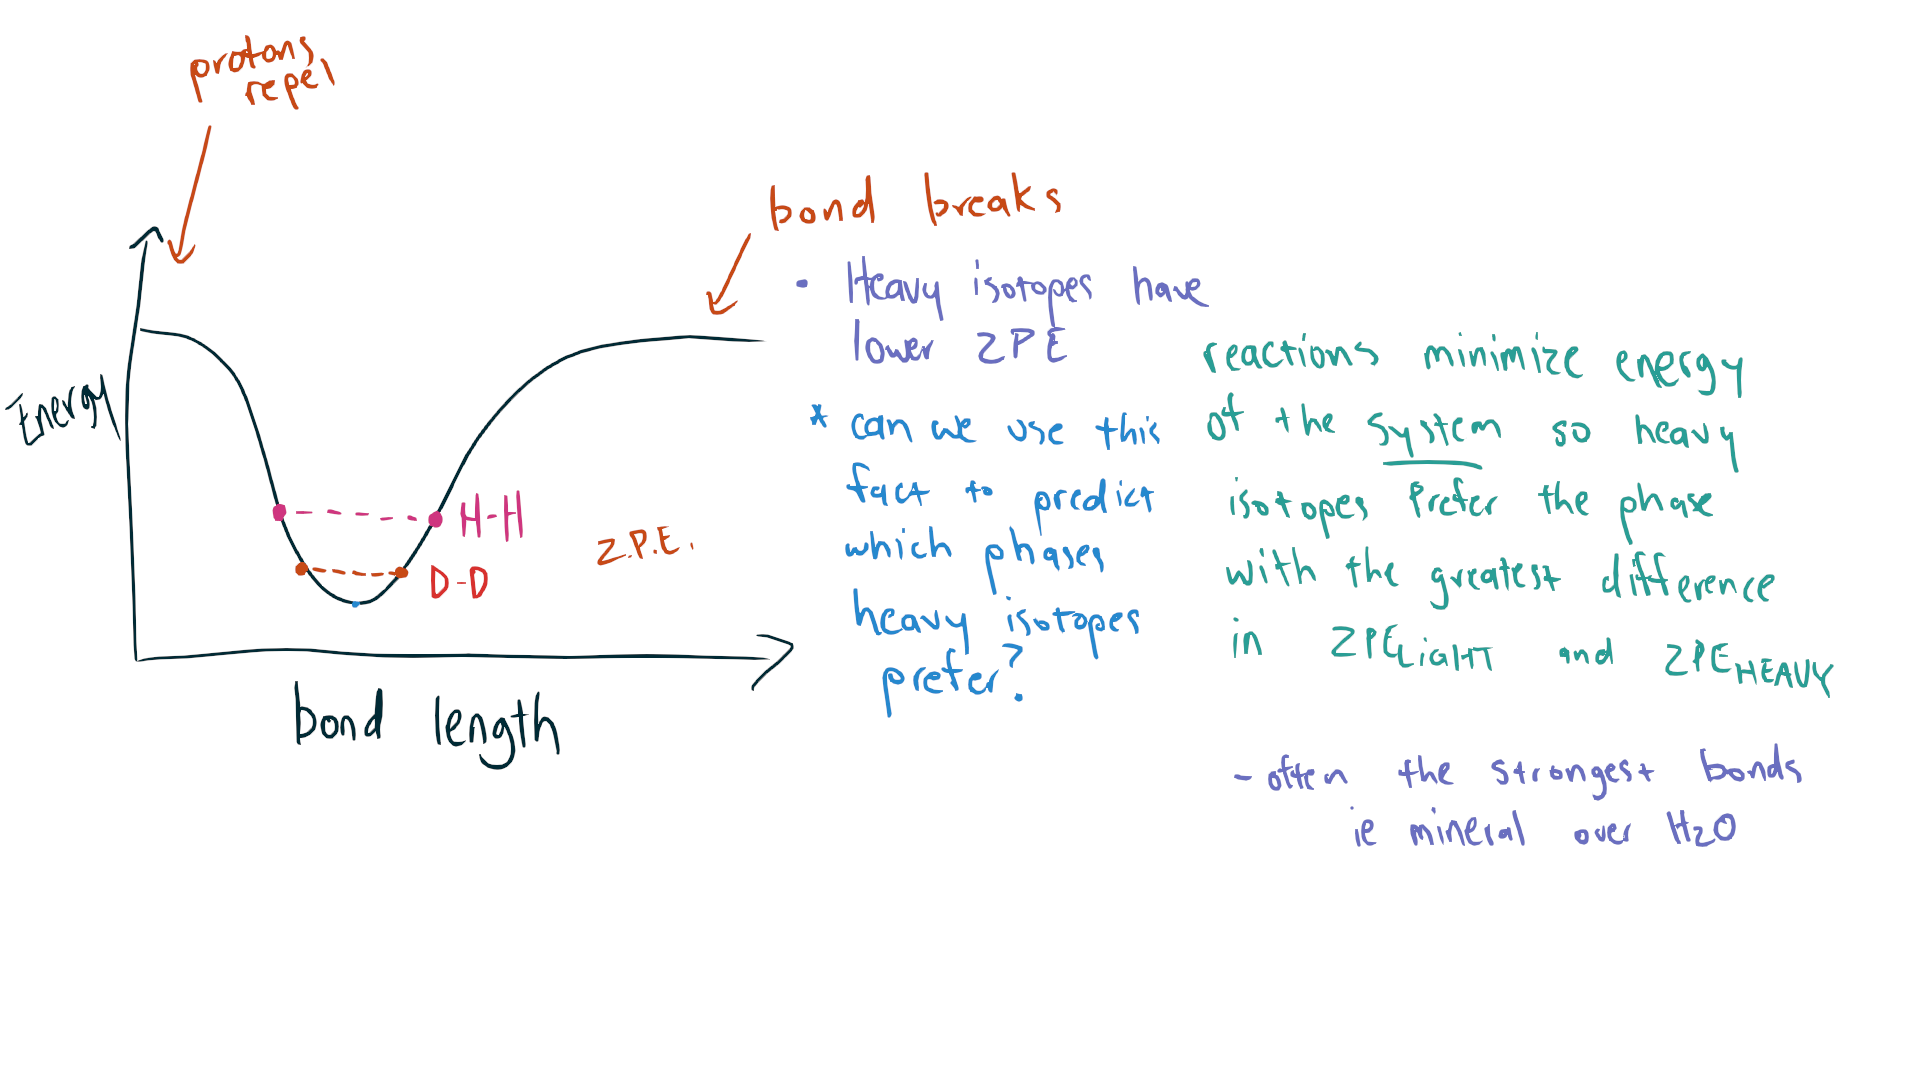 protons
repel
bond breaks
Energy
H-H
D-D
Z.P.E.
bond length
• Heavy isotopes have
lower ZPE
* can we use this
fact to predict
which phases
heavy isotopes
prefer?
reactions minimize energy
of the system so heavy
isotopes prefer the phase
with the greatest difference
in ZPELIGHT and ZPEHEAVY
- often the strongest bonds
ie mineral over H2O